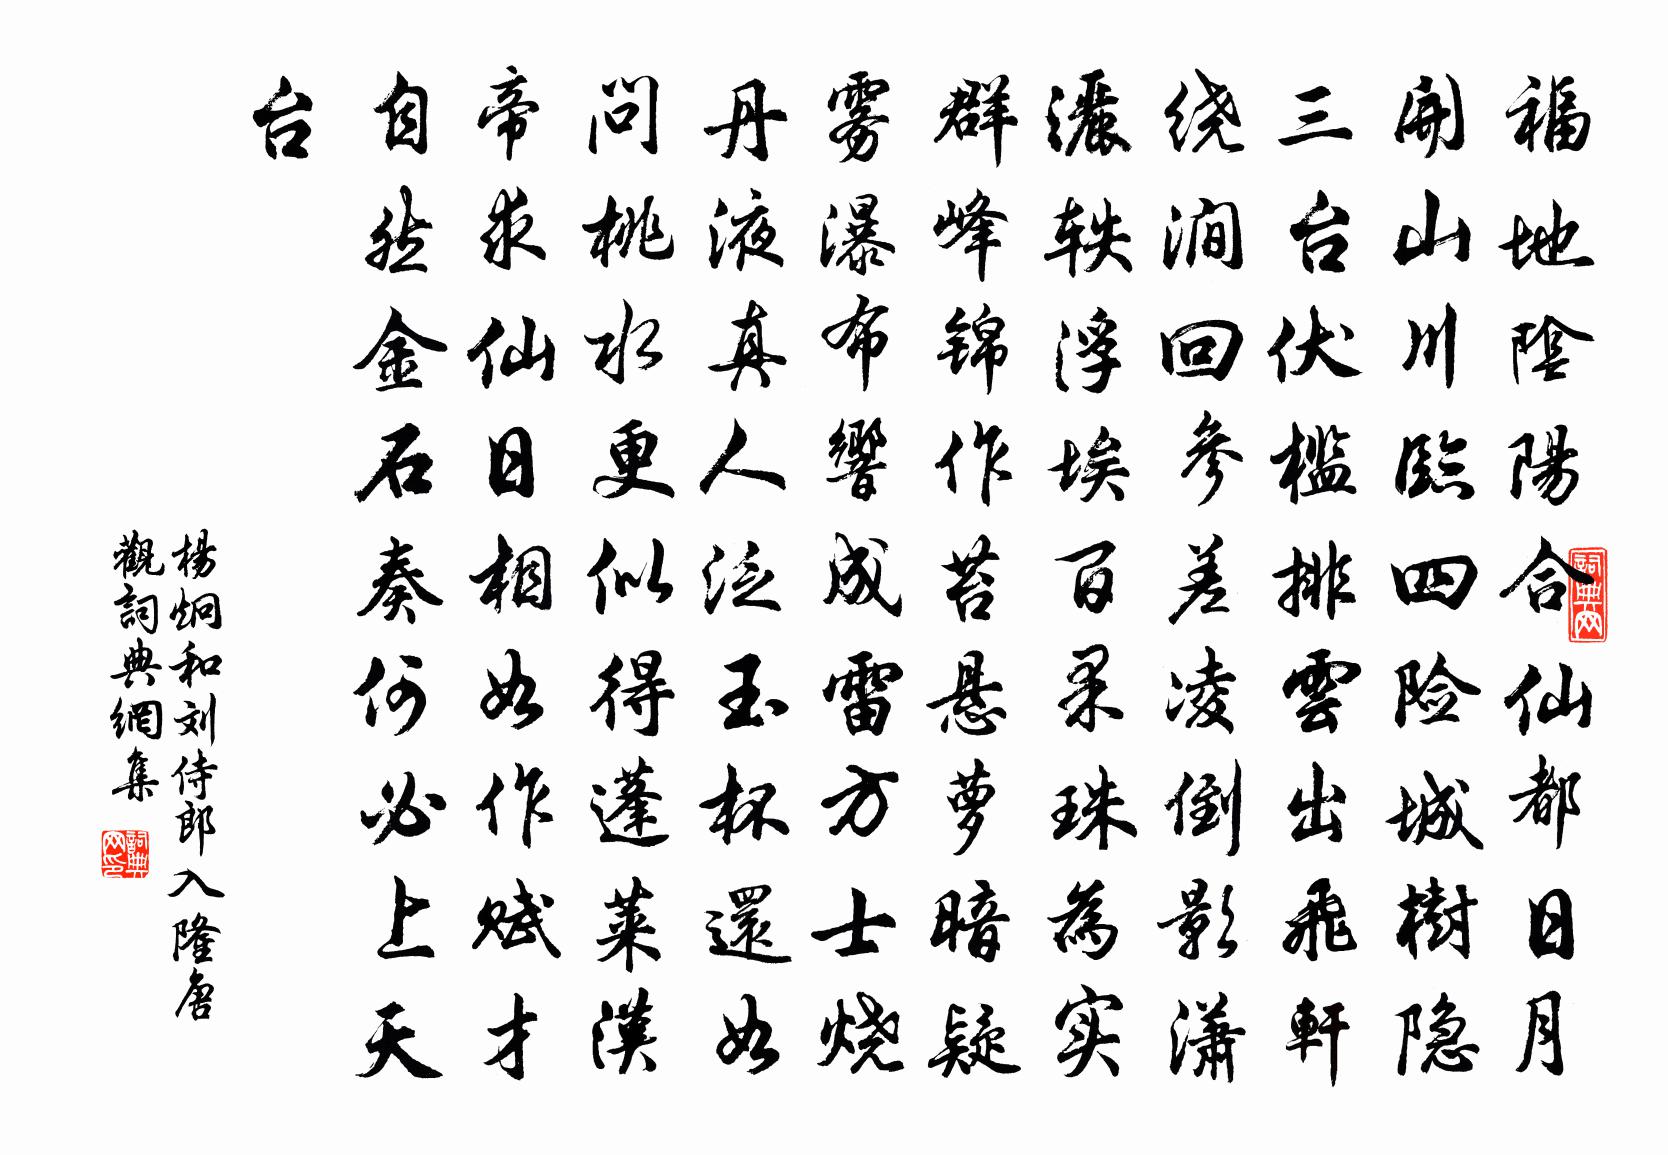 福地陰陽合仙都日月
開山川臨四险城樹隐
三台伏檻排雲出飛軒
绕澗回参差凌倒影瀟
灑轶浮埃百果珠為实
群峰锦作苔悬萝暗疑
雾瀑布響成雷方士烧
丹液真人泛玉杯還如
問桃水更似得蓬莱漢
帝求仙日相如作赋才
自然金石奏何必上天
台
楊炯和刘侍郎入隆唐
觀詞典網集
詞典网
詞典网印